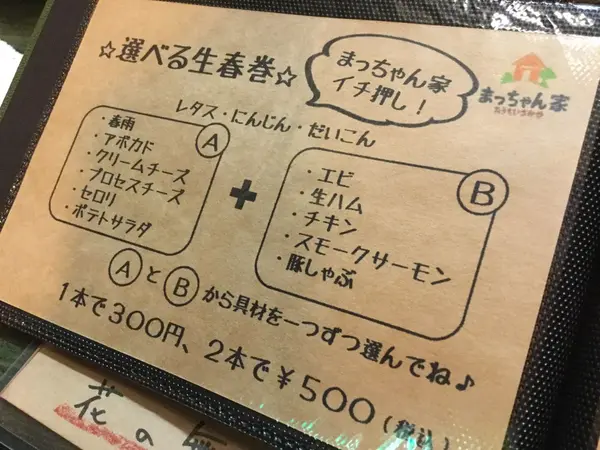 ☆選べる生春巻☆
まっちゃん家
イチ押し!
まっちゃん家
レタス・にんじん・だいこん
A
・春雨
・アボカド
・クリームチーズ
・プロセスチーズ
・セロリ
・ポテトサラダ
+
B
・エビ
・生ハム
・チキン
・スモークサーモン
・豚しゃぶ
AとBから具材を一つずつ選んでね♪
1本で300円、2本で¥500(税込)
花の